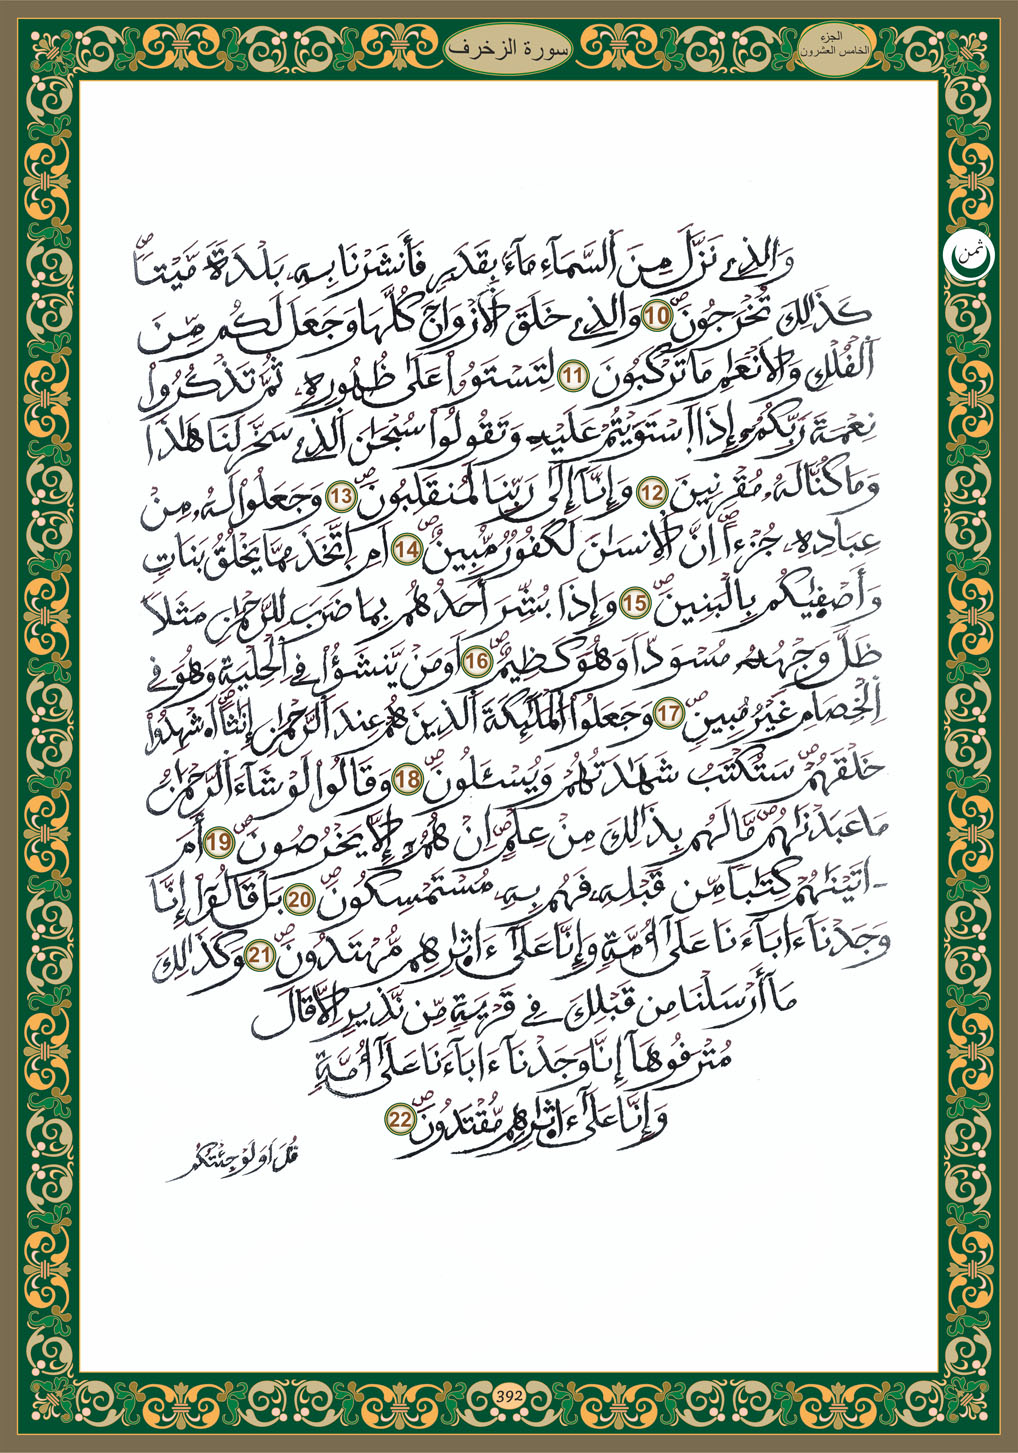 سورة الزخرف
الجزء
الخامس العشرون
ثمن
وَالذِے نَزَّلَ مِنَ اَلسَّمَآءِ مَآءَۢ بِقَدَرٖ فَأَنشَرْنَا بِهِۦ بَلْدَةٗ مَّيْتاٗۖ
كَذَٰلِكَ تُخْرَجُونَۖ 10 وَالذِے خَلَقَ اَلَازْوَٰجَ كُلَّهَا وَجَعَلَ لَكُم مِّنَ
اَلْفُلْكِ وَالَانْعَٰمِ مَا تَرْكَبُونَ 11 لِتَسْتَوُۥاْ عَلَىٰ ظُهُورِهِۦ ثُمَّ تَذْكُرُواْ
نِعْمَةَ رَبِّكُمُۥٓ إِذَا اَسْتَوَيْتُمْ عَلَيْهِ وَتَقُولُواْ سُبْحَٰنَ اَلذِے سَخَّرَ لَنَا هَٰذَا
وَمَا كُنَّا لَهُۥ مُقْرِنِينَ 12 وَإِنَّآ إِلَىٰ رَبِّنَا لَمُنقَلِبُونَۖ 13 وَجَعَلُواْ لَهُۥ مِنْ
عِبَادِهِۦ جُزْءاًۖ اِنَّ اَلِانسَٰنَ لَكَفُورٞ مُّبِينٌۖ 14 اَمِ اِتَّخَذَ مِمَّا يَخْلُقُ بَنَاتٖ
وَأَصْفَىٰكُم بِالْبَنِينَۖ 15 وَإِذَا بُشِّرَ أَحَدُهُم بِمَا ضَرَبَ لِلرَّحْمَٰنِ مَثَلاٗ
ظَلَّ وَجْهُهُۥ مُسْوَدّاٗ وَهُوَ كَظِيمٌۖ 16 اَوَمَنْ يَّنشَؤُاْ فِے اِلْحِلْيَةِ وَهُوَ فِے
اِلْخِصَامِ غَيْرُ مُبِينٖۖ 17 وَجَعَلُواْ اُلْمَلَٰٓئِكَةَ اَلذِينَ هُمْ عِندَ اَلرَّحْمَٰنِ إِنَٰثاًۖ اَ۟شْهِدُواْ
خَلْقَهُمْۖ سَتُكْتَبُ شَهَٰدَتُهُمْ وَيُسْـَٔلُونَۖ 18 وَقَالُواْ لَوْ شَآءَ اَلرَّحْمَٰنُ
مَا عَبَدْنَٰهُمۖ مَّا لَهُم بِذَٰلِكَ مِنْ عِلْمٍۖ اِنْ هُمُۥٓ إِلَّا يَخْرُصُونَۖ 19 أَمَ
اٰتَيْنَٰهُمْ كِتَٰباٗ مِّن قَبْلِهِۦ فَهُم بِهِۦ مُسْتَمْسِكُونَۖ 20 بَلْ قَالُوٓاْ إِنَّا
وَجَدْنَآ ءَابَآءَنَا عَلَىٰٓ أُمَّةٖ وَإِنَّا عَلَىٰٓ ءَاثٰ۪رِهِم مُّهْتَدُونَۖ 21 وَكَذَٰلِكَ
مَآ أَرْسَلْنَا مِن قَبْلِكَ فِے قَرْيَةٖ مِّن نَّذِيرٍ اِلَّا قَالَ
مُتْرَفُوهَآ إِنَّا وَجَدْنَآ ءَابَآءَنَا عَلَىٰٓ أُمَّةٖ
وَإِنَّا عَلَىٰٓ ءَاثٰ۪رِهِم مُّقْتَدُونَۖ 22
قُلَ اَوَلَوْ جِئْتُكُم
392